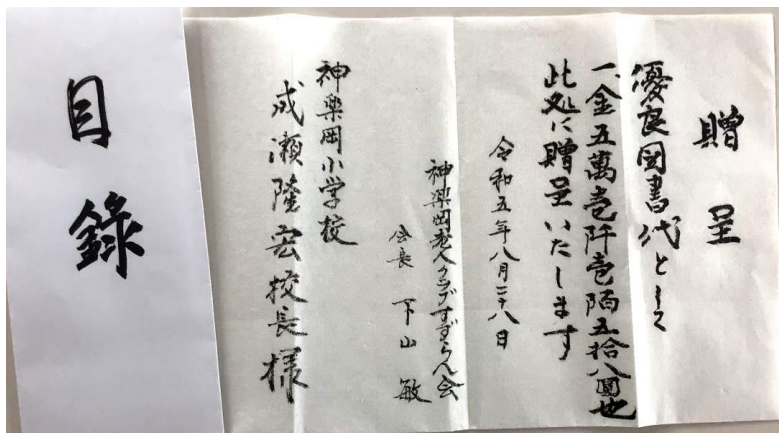 贈呈
優良図書代として
一、金五萬壱阡壱陌五拾八圓也
此処に贈呈いたします
令和五年八月二十八日
神楽岡老人クラブすずらん会
会長 下山 敏
神楽岡小学校
成瀬隆宏校長様
目録